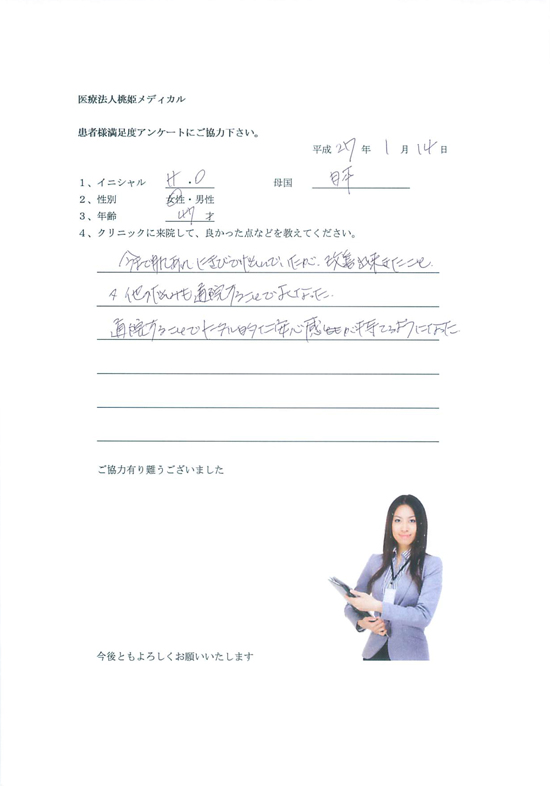 医療法人桃姫メディカル
患者様満足度アンケートにご協力下さい。
平成 27 年 1 月 14 日
1、イニシャル H・O 母国 日本
2、性別 女性・男性
3、年齢 47 才
4、クリニックに来院して、良かった点などを教えてください。
今まで肌あれ にきびで悩んでいたが、改善出来たこと
他の悩みも通院することでよくなった
通院することでトータル的に安心感が持てるようになった
ご協力有り難うございました
今後ともよろしくお願いいたします